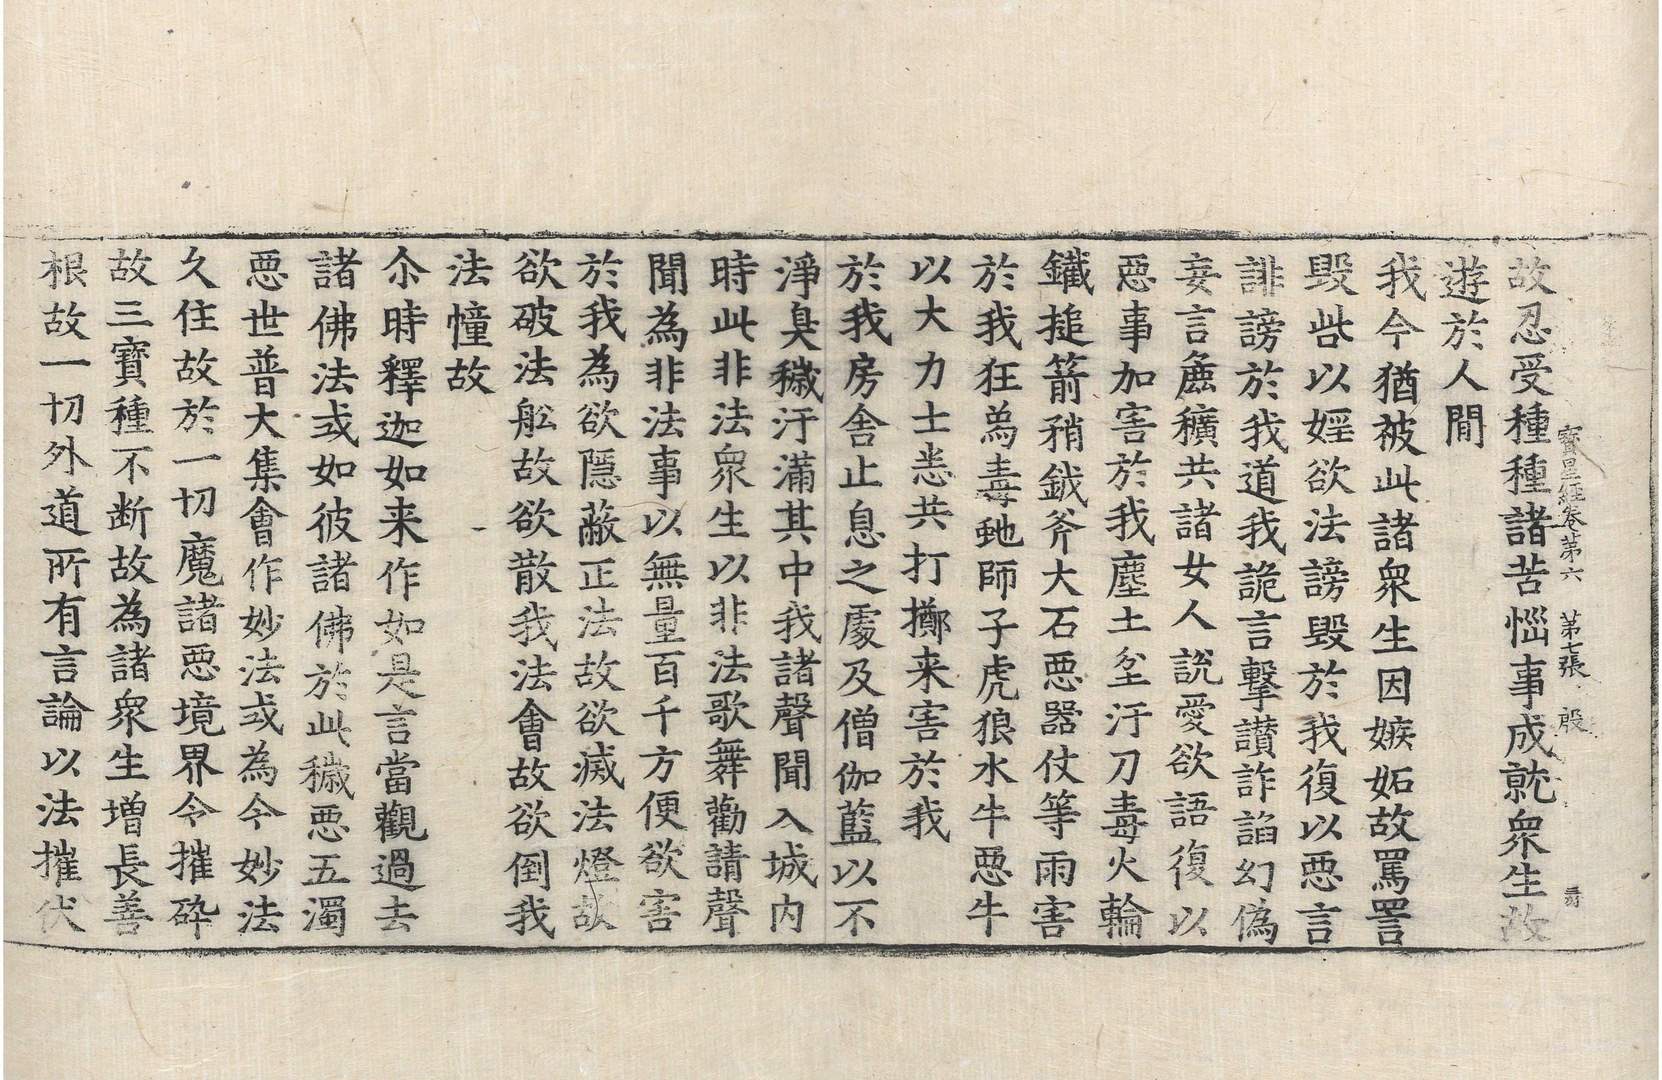 寶星經卷第六　第七張　殷
故忍受種種諸苦惱事成就衆生故
遊於人間
我今猶被此諸衆生因嫉妬故罵詈
毀呰以婬欲法謗毀於我復以惡言
誹謗於我道我詭言擊讃詐諂幻偽
妄言麁穬共諸女人說愛欲語復以
惡事加害於我塵土坌汙刀毒火輪
鐵搥箭矟鉞斧大石惡器仗等雨害
於我狂象毒虵師子虎狼水牛惡牛
以大力士悉共打擲来害於我
於我房舍止息之處及僧伽藍以不
淨臭穢汙滿其中我諸聲聞入城内
時此非法衆生以非法歌舞勸請聲
聞為非法事以無量百千方便欲害
於我為欲隱蔽正法故欲滅法燈故
欲破法舩故欲散我法會故欲倒我
法幢故
尒時釋迦如来作如是言當觀過去
諸佛法或如彼諸佛於此穢惡五濁
惡世普大集會作妙法或為令妙法
久住故於一切魔諸惡境界令摧碎
故三寶種不断故為諸衆生增長善
根故一切外道所有言論以法摧伏